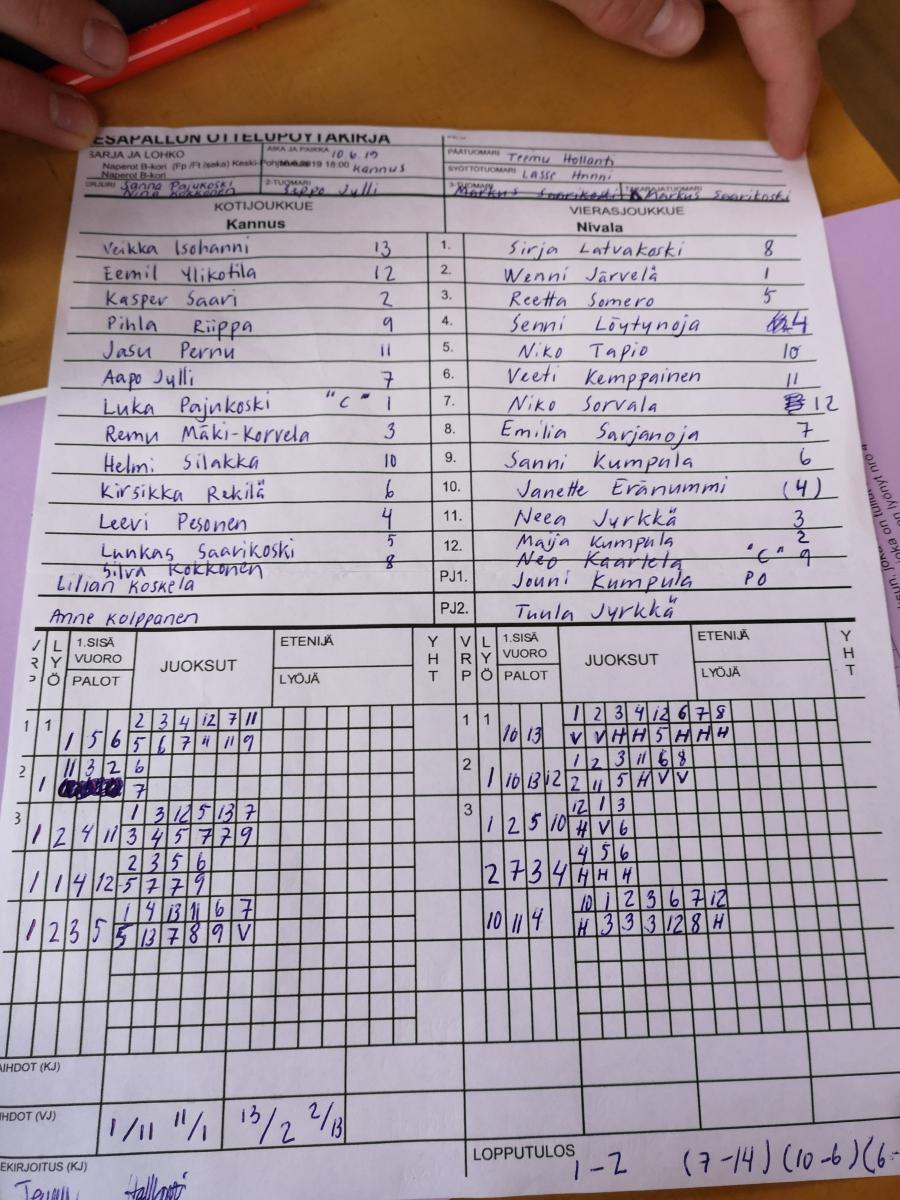 ESÄPALLON OTTELUPÖYTÄKIRJA
SARJA JA LOHKO
Naperot B-kori (Fp /Ft /seka) Keski-Pohj
Naperot B-kori
AIKA JA PAIKKA 10.6.19
2019 18:00 Kannus
PÄÄTUOMARI Teemu Hollanti
SYÖTTÖTUOMARI Lasse
Sanna Pajukoski
Nina Kokkonen
2-TUOMARI Seppo Jylli
3-TUOMARI Markus Saarikoski
TAKARAJATUOMARI Markus Saarikoski
KOTIJOUKKUE
Kannus
VIERASJOUKKUE
Nivala
Veikka Isohanni 13 1. Sirja Latvakoski 8
Eemil Ylikotila 12 2. Wenni Järvelä 1
Kasper Saari 2 3. Reetta Somero 5
Pihla Riippa 9 4. Senni Löytynoja 4
Jasu Pernu 11 5. Niko Tapio 10
Aapo Jylli 7 6. Veeti Kemppainen 11
Luka Pajukoski "C" 1 7. Niko Sorvala 12
Remu Mäki-Korvela 3 8. Emilia Sarjanoja 7
Helmi Silakka 10 9. Sanni Kumpula 6
Kirsikka Rekilä 6 10. Janette Eränummi (4)
Leevi Pesonen 4 11. Neea Jyrkkä 3
Luukas Saarikoski 5 12. Maija Kumpula 2
Silva Kokkonen 8 Neo Kaartela "C" 9
Lilian Koskela PJ1. Jouni Kumpula PO
Anne Kolppanen PJ2. Tuula Jyrkkä
VRP LYÖ 1.SISÄ VUORO PALOT JUOKSUT ETENIJÄ LYÖJÄ YHT
VRP LYÖ 1.SISÄ VUORO PALOT JUOKSUT ETENIJÄ LYÖJÄ YHT
1 1 2 3 4 12 7 11
1 5 6 5 6 7 11 11 9
2 11 3 2 6
1 7
3 1 3 12 5 13 7
1 2 4 11 3 4 5 7 7 9
2 3 5 6
1 1 4 12 5 7 7 9
1 4 13 11 6 7
1 2 3 5 5 13 7 8 9 V
1 1 1 2 3 4 12 6 7 8
10 13 V V H H 5 H H H
2 1 2 3 11 6 8
1 10 13 12 2 11 5 H V V
3 12 1 3
1 2 5 10 H V 6
4 5 6
2 7 3 4 H H H
10 1 2 3 6 7 12
10 11 4 H 3 3 3 12 8 H
AIHDOT (KJ)
IHDOT (VJ) 1/11 11/1 13/2 2/13
EKIRJOITUS (KJ)
LOPPUTULOS 1-2 (7-14) (10-6) (6-